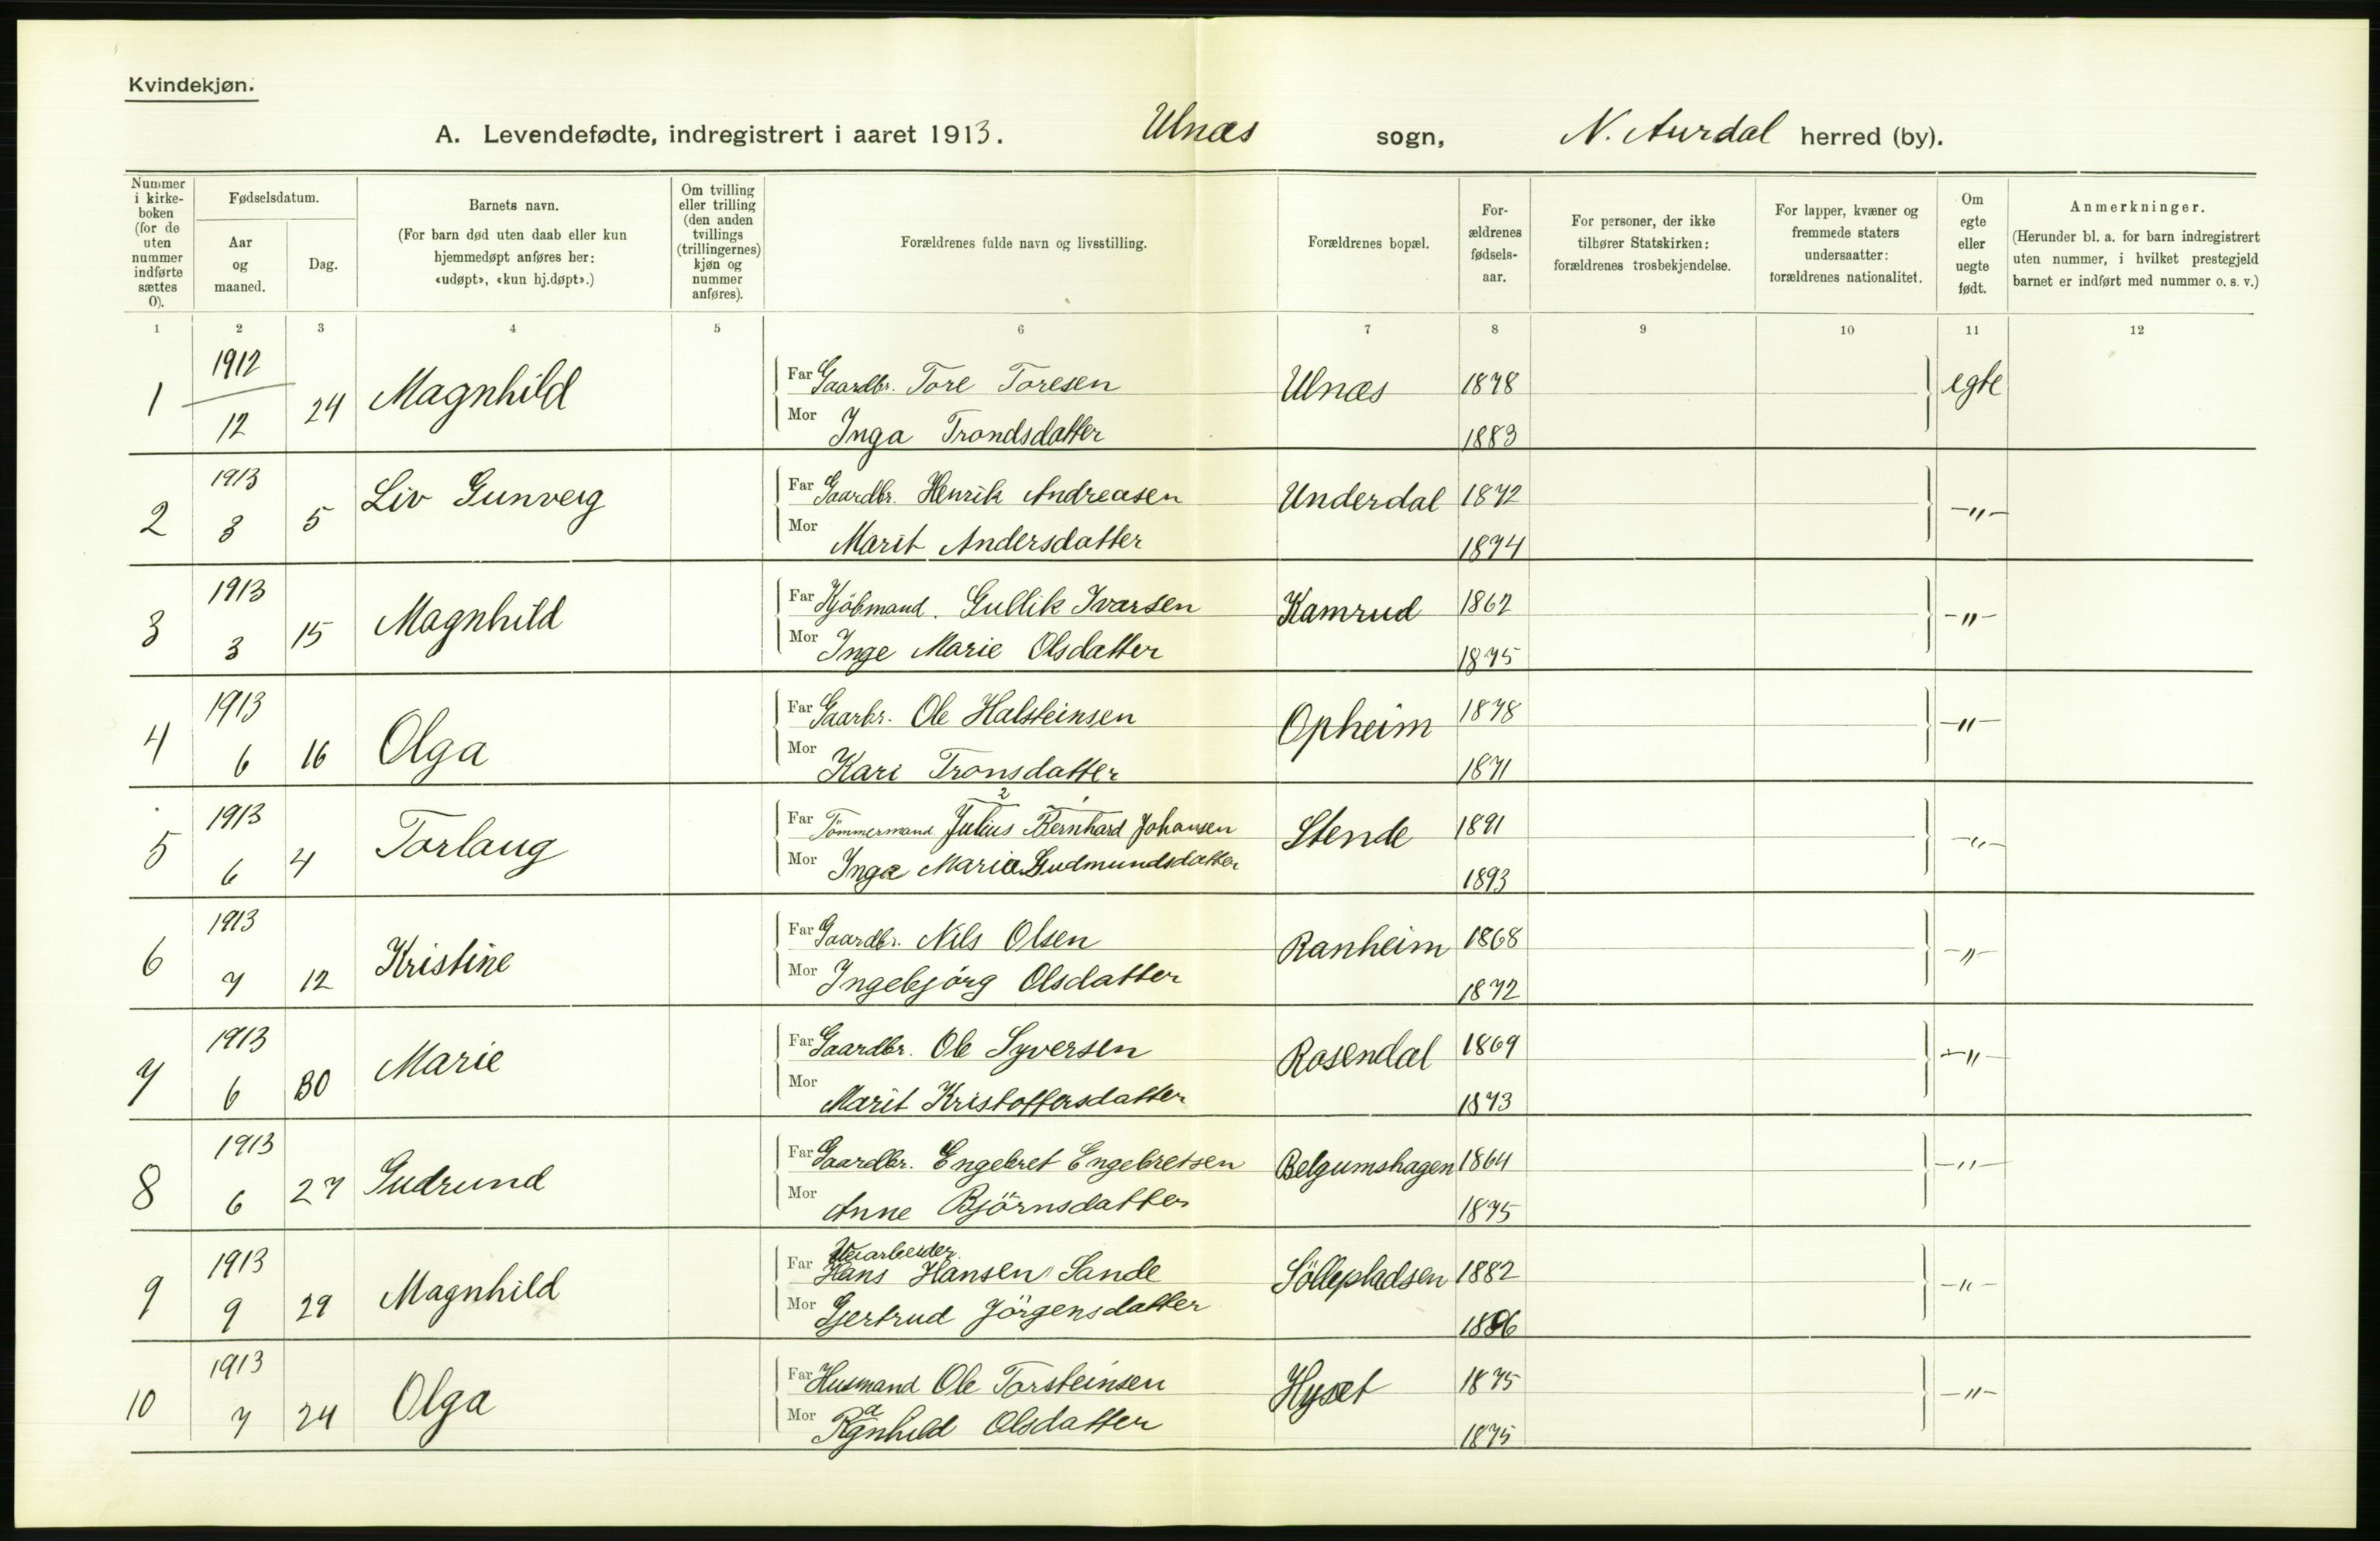 Kvindekjøn.
A. Levendefødte, indregistrert i aaret 1913. Ulnæs sogn, N. Aurdal herred (by).
Nummer i kirke-boken (for de uten nummer indførte sættes 0).
Fødselsdatum.
Aar og maaned.
Dag.
Barnets navn.
(For barn død uten daab eller kun hjemmedøpt anføres her: «udøpt», «kun hj.døpt».)
Om tvilling eller trilling (den anden tvillings (trillingernes) kjøn og nummer anføres).
Forældrenes fulde navn og livsstilling.
Forældrenes bopæl.
For-ældrenes fødsels-aar.
For personer, der ikke tilhører Statskirken: forældrenes trosbekjendelse.
For lapper, kvæner og fremmede staters undersaatter: forældrenes nationalitet.
Om egte eller uegte født.
Anmerkninger.
(Herunder bl. a. for barn indregistrert uten nummer, i hvilket prestegjeld barnet er indført med nummer o. s. v.)
1 2 3 4 5 6 7 8 9 10 11 12
1 1912 12 24 Magnhild Far Gaardbr. Tore Toresen Ulnæs 1878 egte
Mor Inga Trondsdatter 1883
2 1913 3 5 Liv Gunveig Far Gaardbr. Henrik Andreasen Underdal 1872 -"-
Mor Marit Andersdatter 1874
3 1913 3 15 Magnhild Far Kjöbmand. Gullik Ivarsen Kamrud 1862 -"-
Mor Inge Marie Olsdatter 1875
4 1913 6 16 Olga Far Gaarbr. Ole Halsteinsen Opheim 1878 -"-
Mor Kari Tronsdatter 1871
5 1913 6 4 Torlaug Far Tömmermand Julius Bernhard Johansen Stende 1891 -"-
Mor Inga Maria Gudmundsdatter 1893
6 1913 7 12 Kristine Far Gaardbr. Nils Olsen Ranheim 1868 -"-
Mor Ingebjörg Olsdatter 1872
7 1913 6 30 Marie Far Gaardbr. Ole Syversen Rosendal 1869 -"-
Mor Marit Kristoffersdatter 1873
8 1913 6 27 Gudrund Far Gaardbr. Engebret Engebretsen Belgumshagen 1864 -"-
Mor Anne Björnsdatter 1875
9 1913 9 29 Magnhild Far Veiarbeider. Hans Hansen Sande Söllepladsen 1882 -"-
Mor Gjertrud Jörgensdatter 1886
10 1913 7 24 Olga Far Husmand Ole Torsteinsen Hyset 1875 -"-
Mor Ragnhild Olsdatter 1875